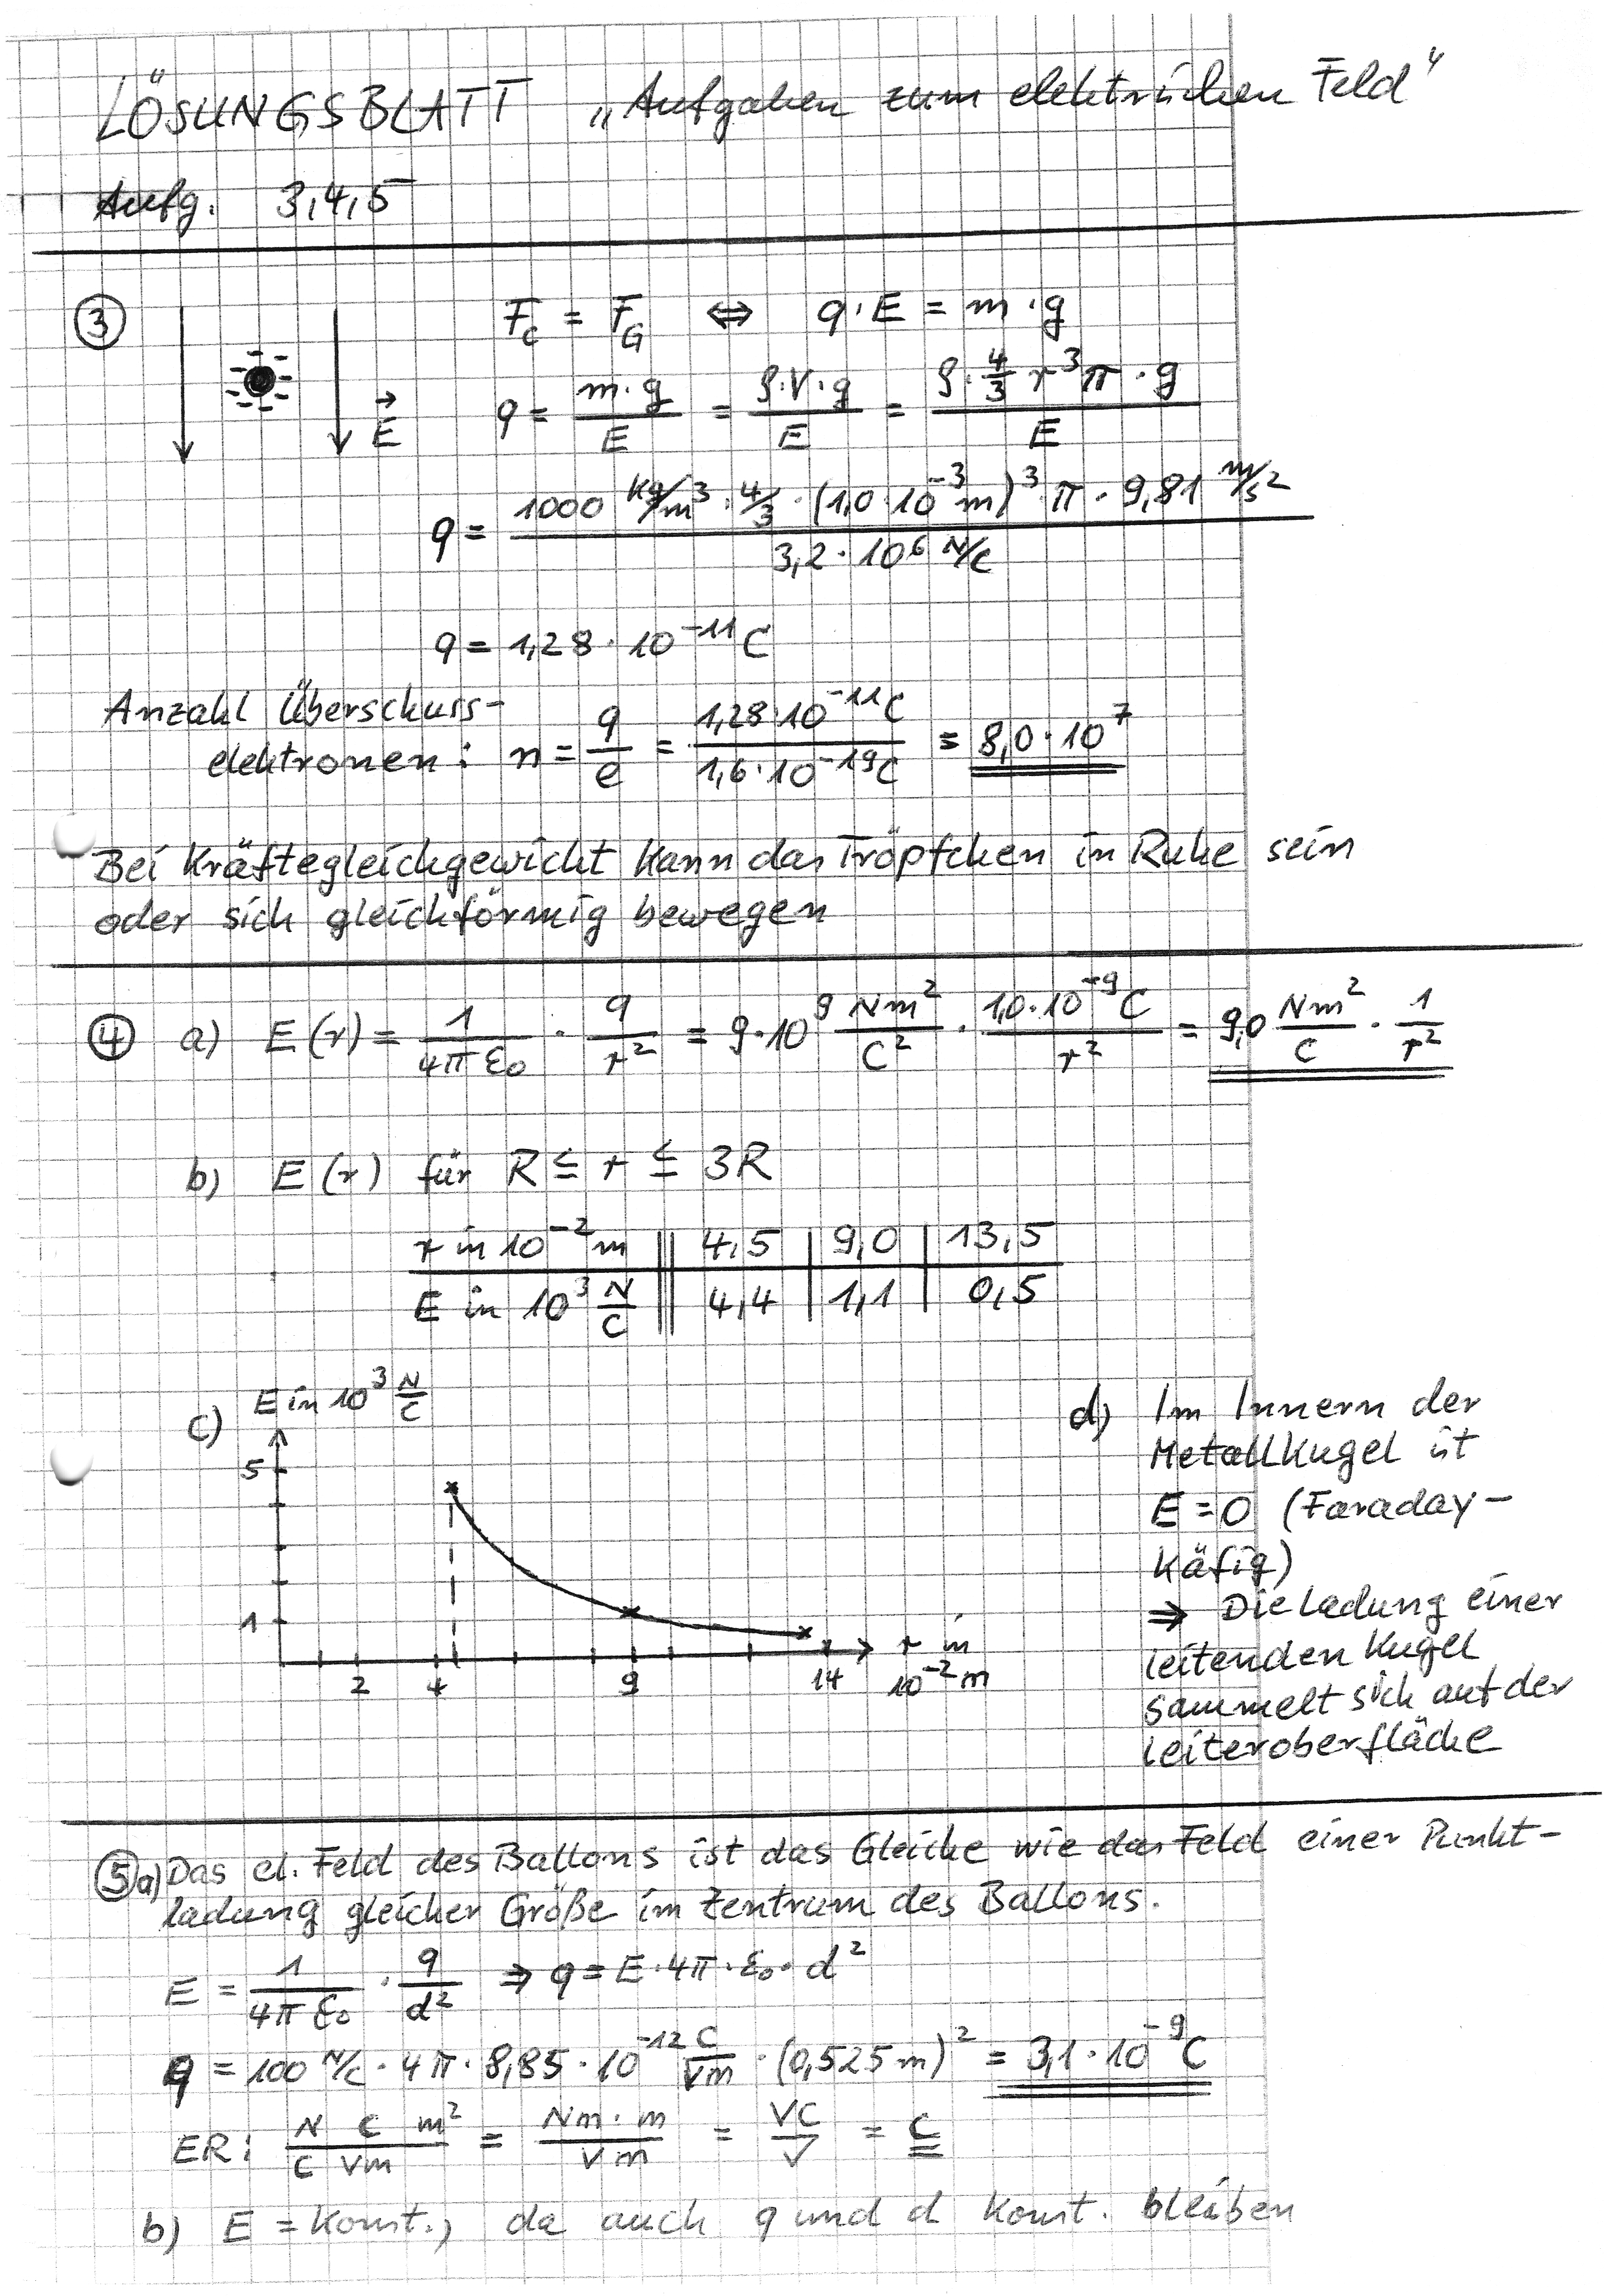 LÖSUNGSBLATT „Aufgaben zum elektrischen Feld"
Aufg. 3,4,5
③ F_C = F_G ⇔ q·E = m·g
E⃗ q = m·g/E = ρ·V·g/E = ρ·4/3 r³π·g/E
q = 1000 kg/m³ · 4/3 · (1,0·10⁻³m)³·π·9,81 m/s² / 3,2·10⁶ N/C
q = 1,28·10⁻¹¹ C
Anzahl Überschuss-
elektronen: n = q/e = 1,28·10⁻¹¹C / 1,6·10⁻¹⁹C = 8,0·10⁷
Bei Kräftegleichgewicht kann das Tröpfchen in Ruhe sein
oder sich gleichförmig bewegen
④ a) E(r) = 1/4πε₀ · q/r² = 9·10⁹ Nm²/C² · 1,0·10⁻⁹C/r² = 9,0 Nm²/C · 1/r²
b) E(r) für R ≤ r ≤ 3R
r in 10⁻²m || 4,5 | 9,0 | 13,5
E in 10³ N/C || 4,4 | 1,1 | 0,5
c) E in 10³ N/C
5
1
2 4 9 14
r in
10⁻²m
d) Im Innern der
Metallkugel ist
E = 0 (Faraday-
käfig)
⇒ Die Ladung einer
leitenden Kugel
sammelt sich auf der
Leiteroberfläche
⑤ a) Das el. Feld des Ballons ist das Gleiche wie das Feld einer Punkt-
ladung gleicher Größe im Zentrum des Ballons.
E = 1/4πε₀ · q/d² ⇒ q = E·4π·ε₀·d²
q = 100 N/C · 4π · 8,85·10⁻¹² C/Vm · (0,525m)² = 3,1·10⁻⁹ C
ER: N C m²/C Vm = Nm·m/Vm = VC/V = C
b) E = konst., da auch q und d konst. bleiben